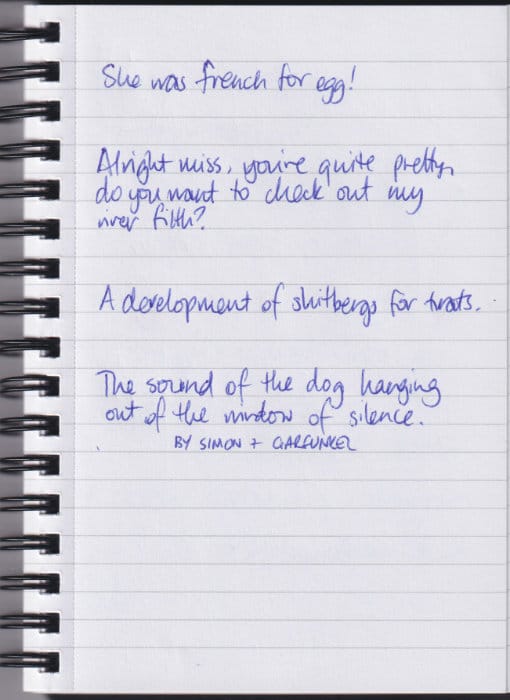 She was french for egg!
Alright miss, you're quite pretty,
do you want to check out my
river filth?
A development of shitbergs for twats.
The sound of the dog hanging
out of the window of silence.
BY SIMON + GARFUNKEL